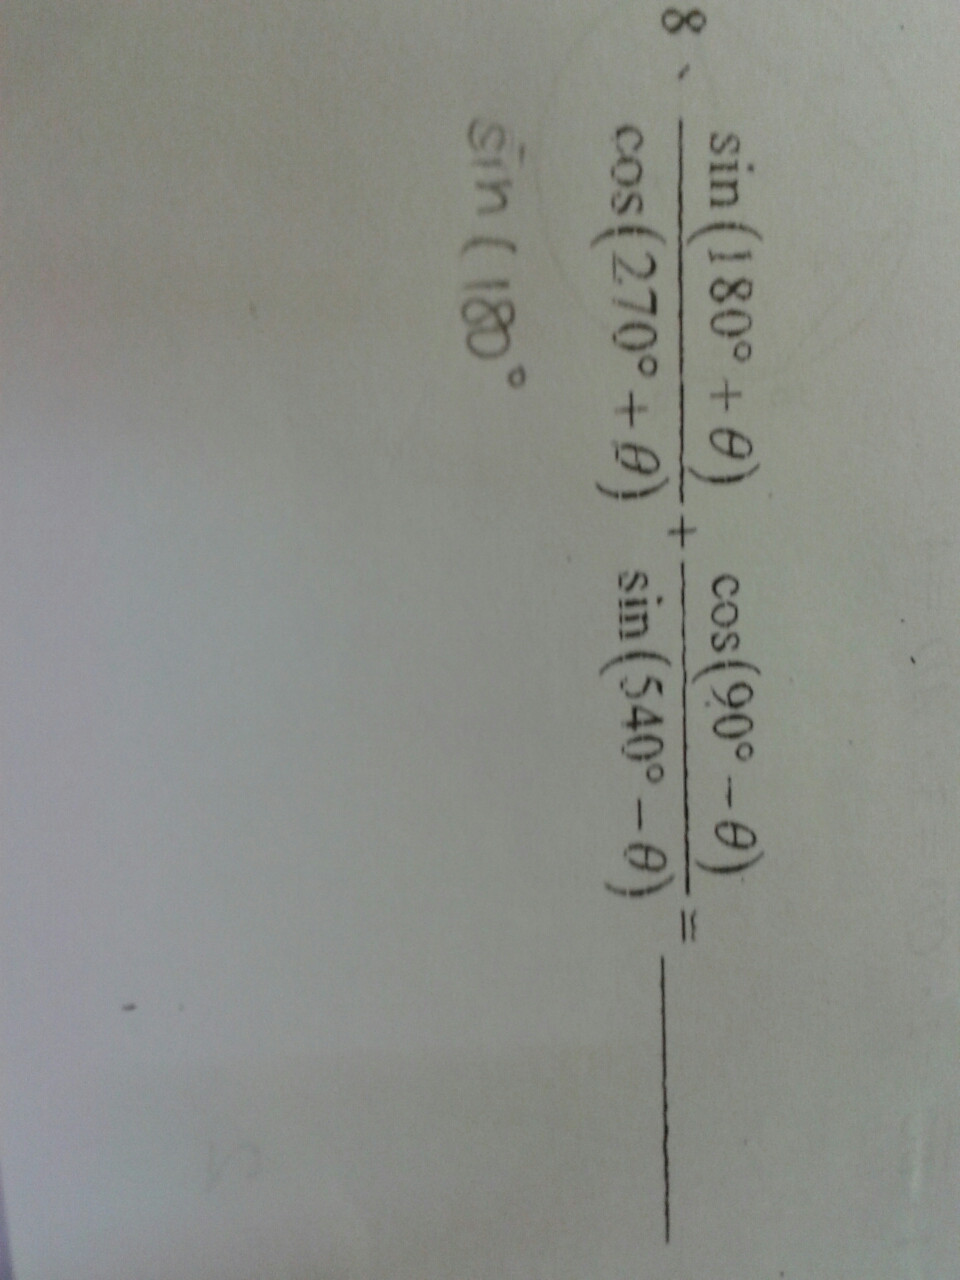 8、 sin(180° + θ) / cos(270° + θ) + cos(90° − θ) / sin(540° − θ) = ______
sin(180°